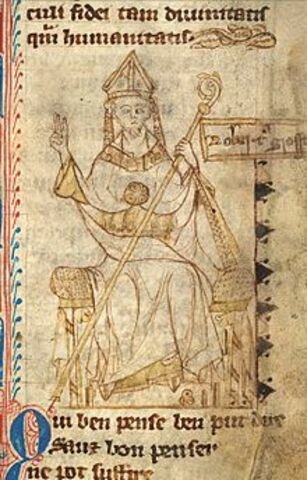 culi fidei tam diuinitatis
humanitatis.
groſſ
Qui ben penſe ben put dire
Sanz bon penſer
ne pot ſuffire